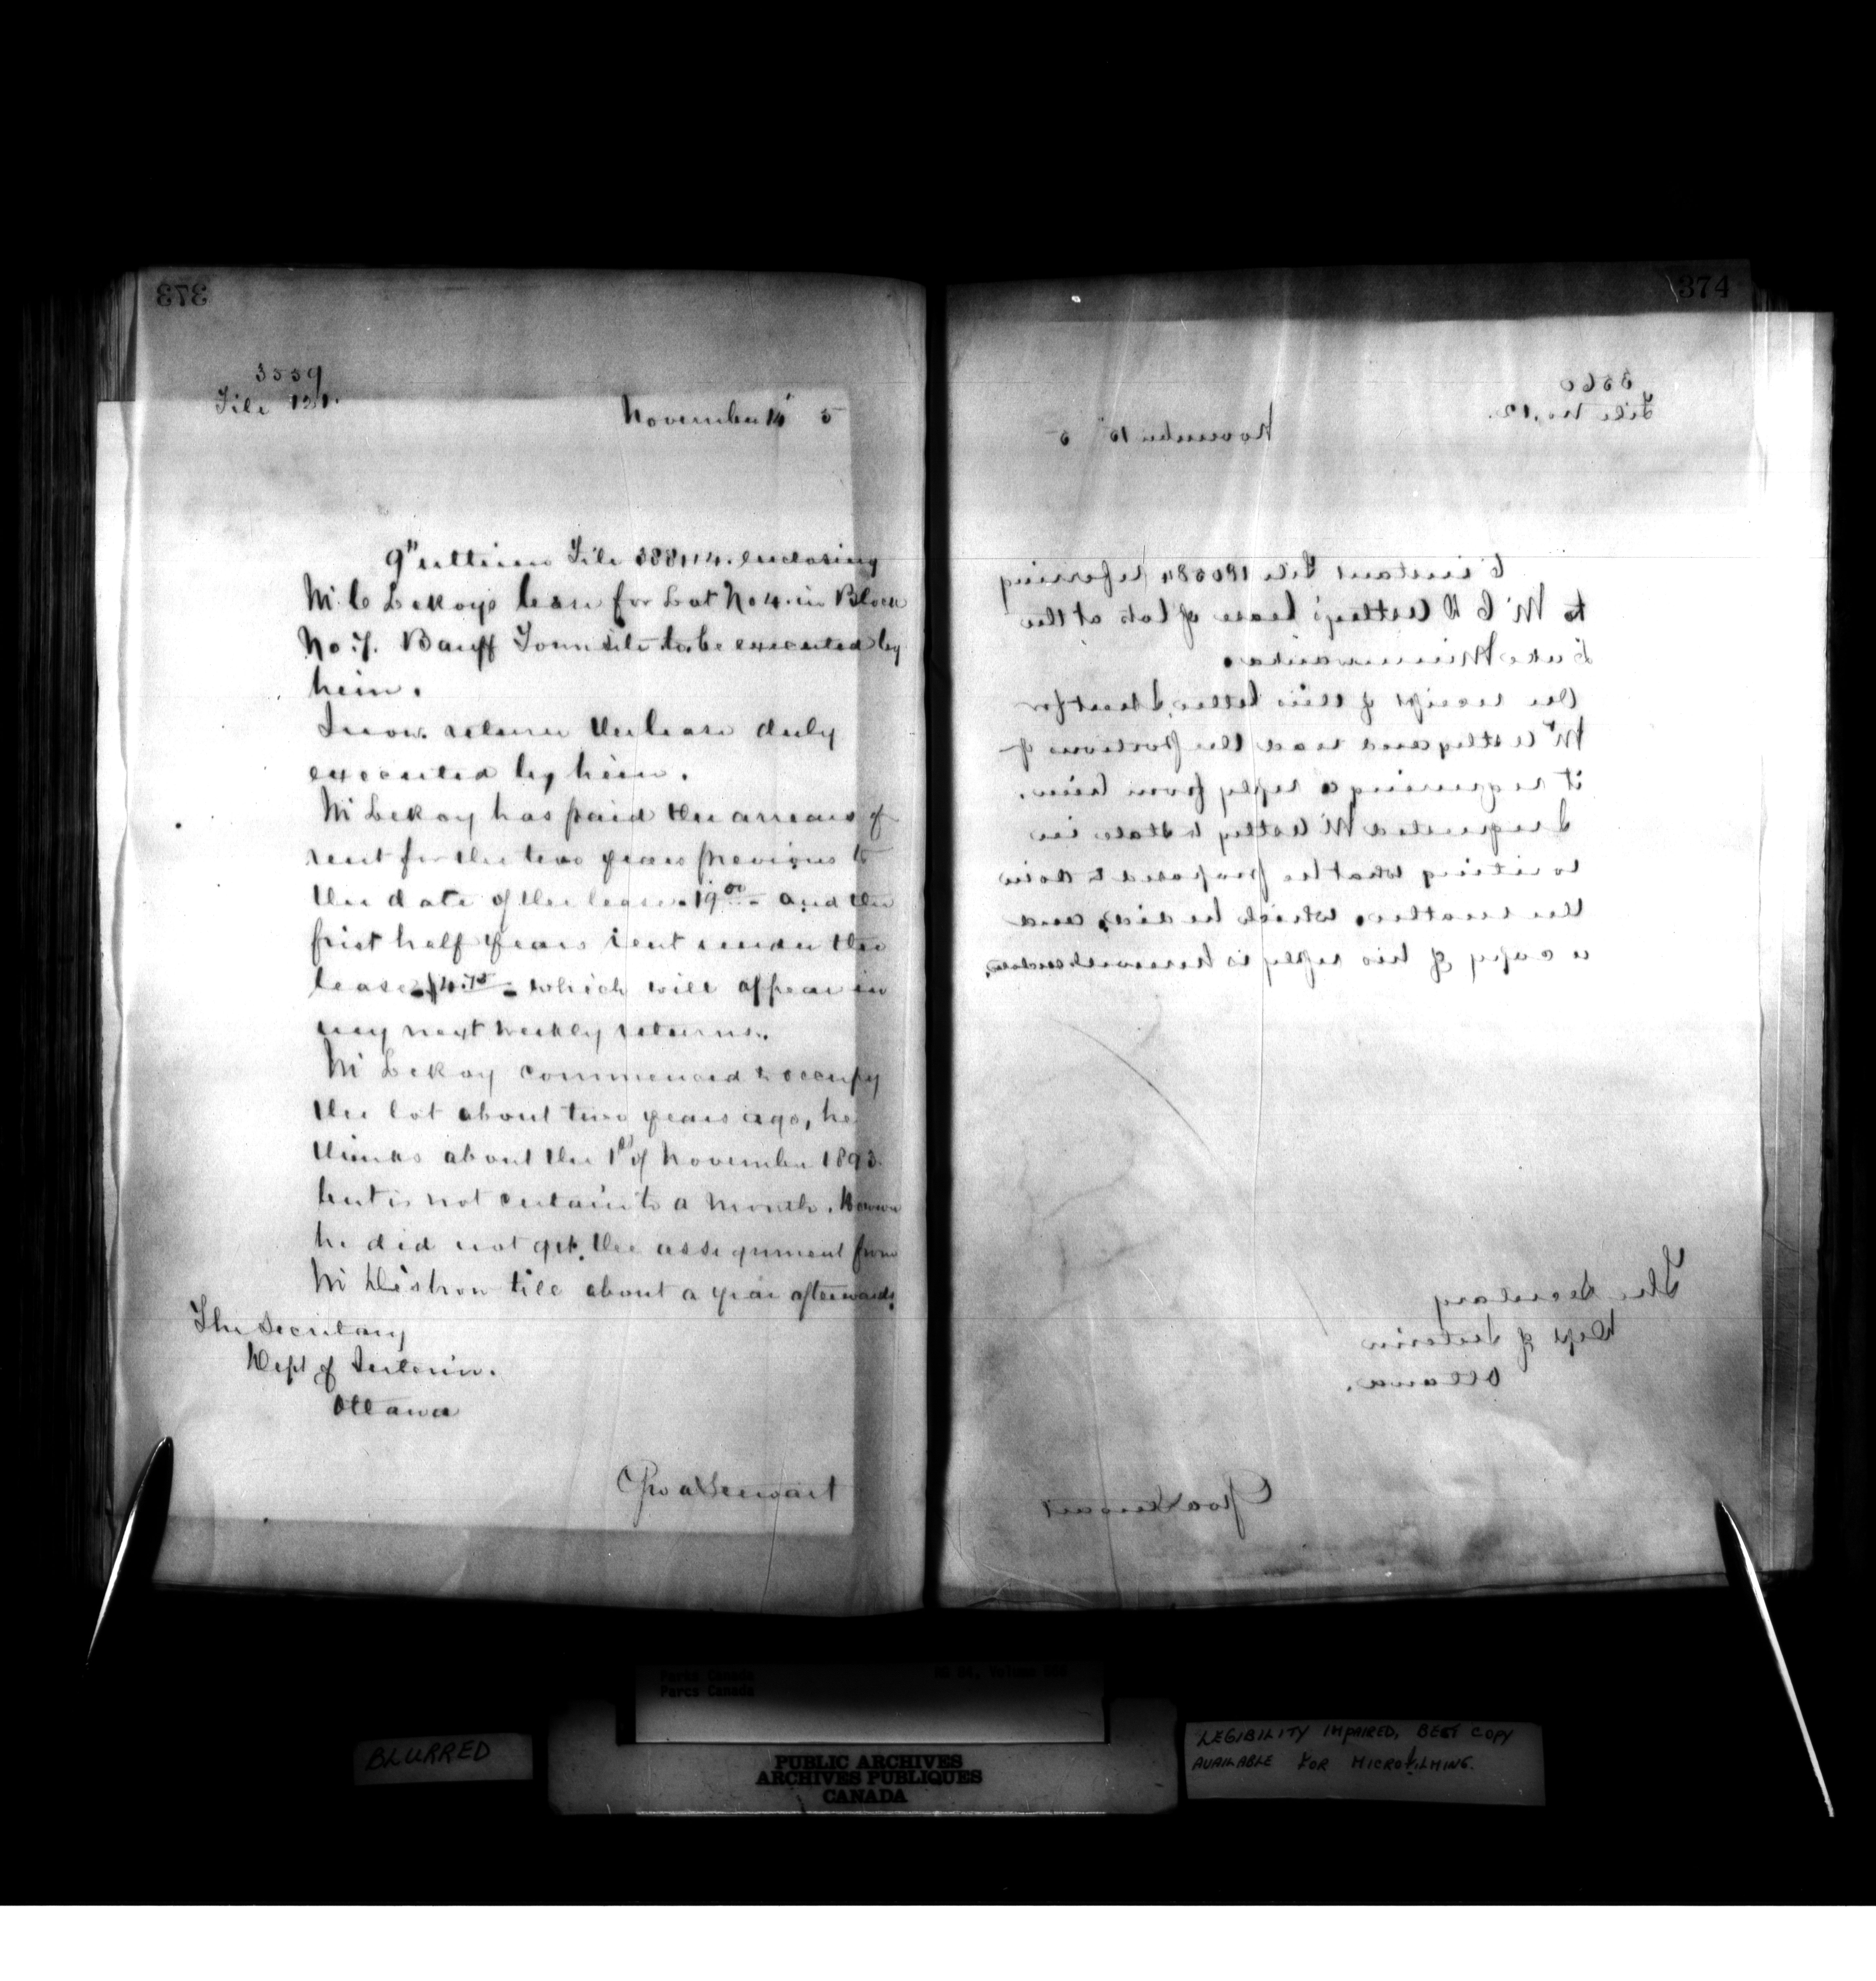 373
3559
File 121.
November 14" 5
9" ultimo File 388114. enclosing
Mr C LeRoy's lease for Lot No 4. in Block
No 7. Banff Townsite to be executed by
him.
I now return the lease duly
executed by him.
Mr LeRoy has paid the arrears of
rent for the two years previous to
the date of the lease. 19.00 and the
first half years rent under the
lease $4.75 which will appear in
my next weekly returns.
Mr LeRoy commenced to occupy
the lot about two years ago, he
thinks about the 1st of November 1893.
but is not certain to a month. However
he did not get the assignment from
Mr till about a year afterwards.
The Secretary
Dept of Interior.
Ottawa
Geo A Stewart
374
3560
File No. 12.
November 15" 5
6 instant File 180584 referring
to Mr C D Astley's lease of lots at the
Lake Minnewanka.
On receipt of this letter, I sent for
Mr Astley and read the portions of
it requiring a reply from him.
I requested Mr Astley to state in
writing what he proposed to do in
the matter, which he did, and
a copy of his reply is herewith enclosed.
The Secretary
Dept of Interior
Ottawa.
Geo A Stewart
Parks Canada
Parcs Canada
BLURRED
PUBLIC ARCHIVES
ARCHIVES PUBLIQUES
CANADA
LEGIBILITY IMPAIRED, BEST COPY
AVAILABLE FOR MICROFILMING.